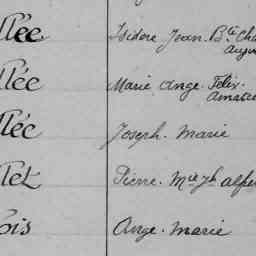 llée Isidore Jean. Bte Cha
Augu
llée Marie Ange. Félix.
Amarce
llée Joseph. Marie
llet Pierre. Mie Jh alfre
lois Ange. Marie